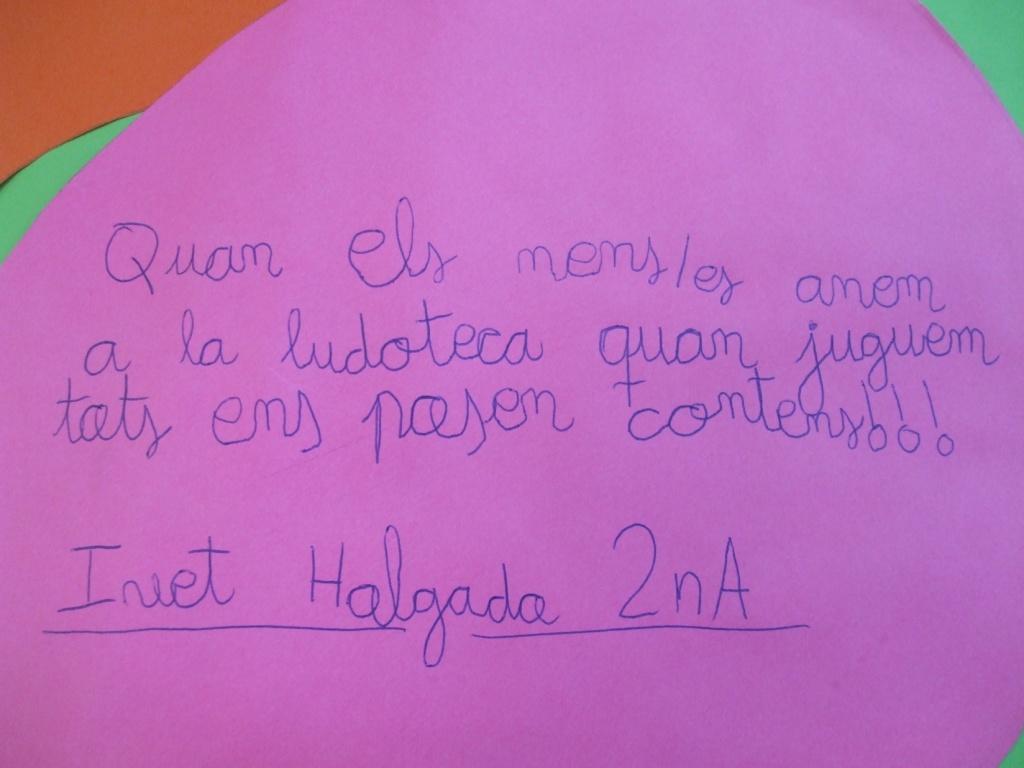 Quan els nens/es anem
a la ludoteca quan juguem
tots ens posen contens!!!
Halgada 2nA